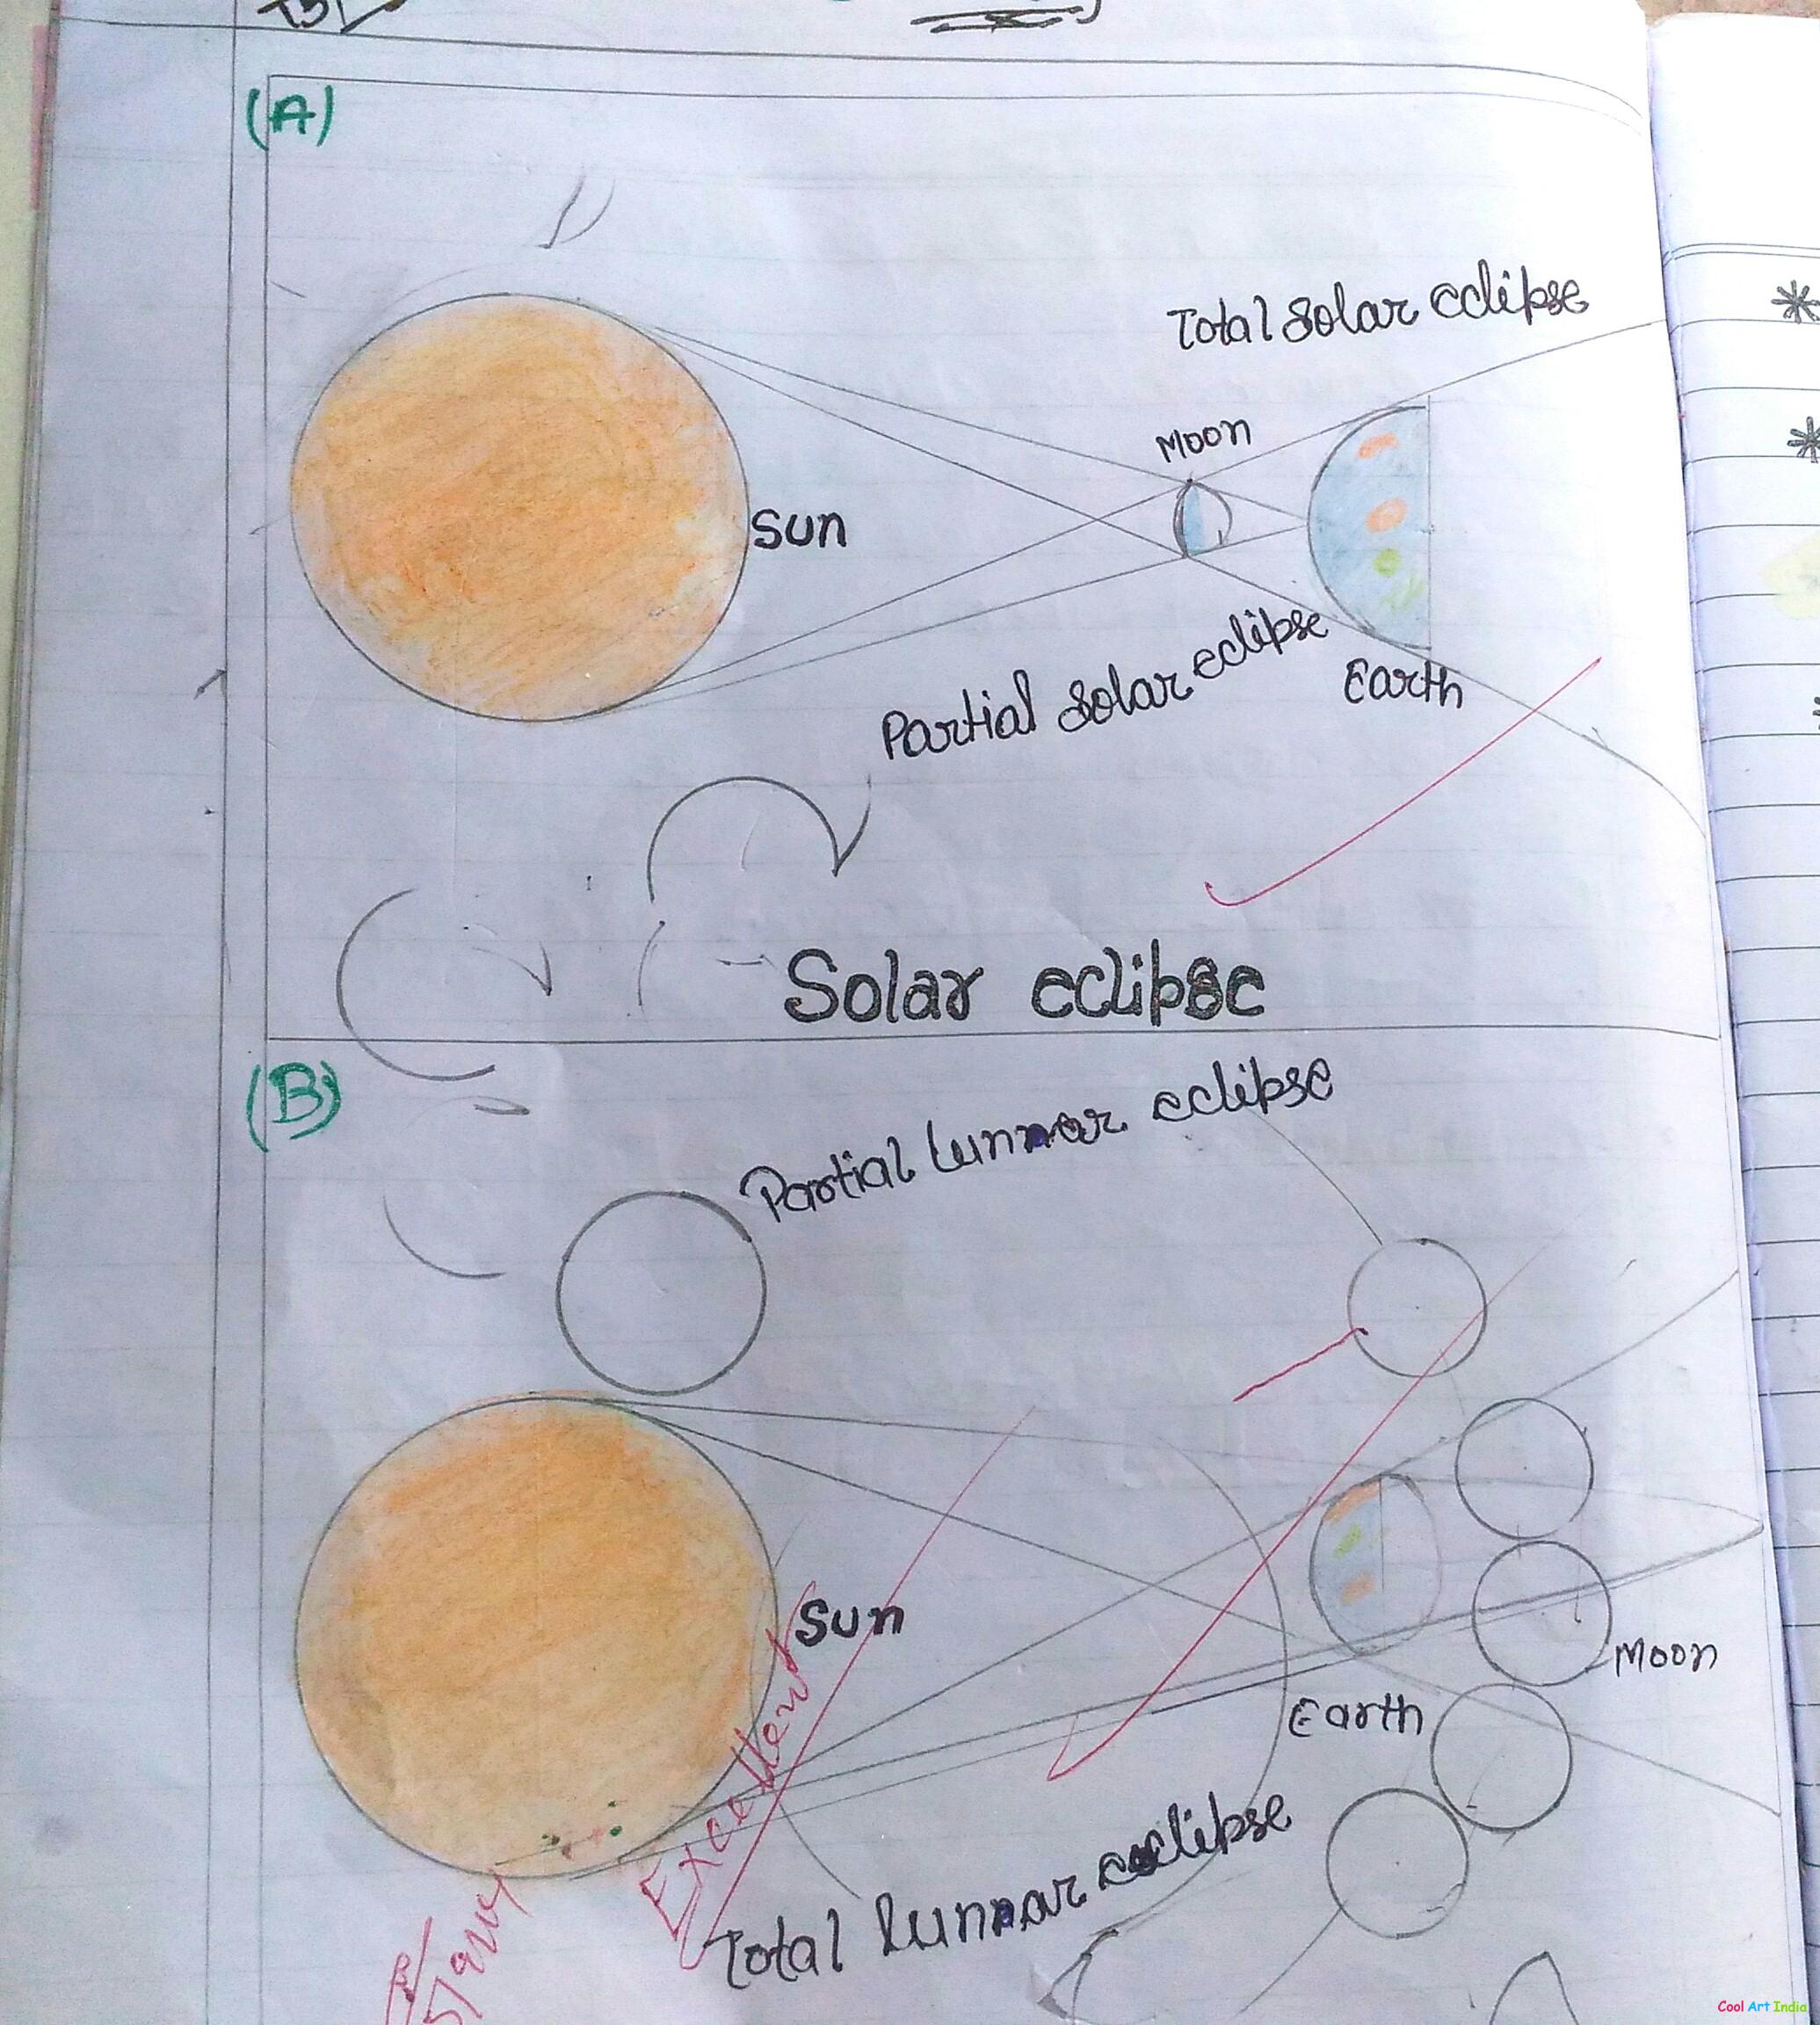 (A)
Total Solar eclipse
Moon
Sun
Partial Solar eclipse
Earth
Solar eclipse
(B)
Partial Lunnar eclipse
Sun
Moon
Earth
Excellent
Total lunnar eclipse
Cool Art India